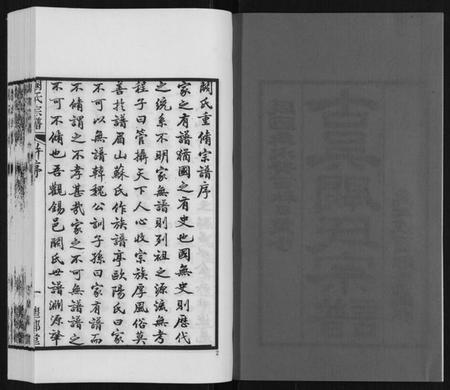 闗氏重脩宗譜序
家之有譜猶國之有史也國無史則歷代
之統系不明家無譜則列祖之源流無考
程子曰管攝天下人心收宗族厚風俗莫
善於譜眉山蘇氏作族譜亭歐陽氏曰家
不可以無譜韓魏公訓子孫曰家有譜而
不脩謂之不孝甚哉家之不可無譜譜之
不可不脩也吾觀錫邑闗氏世譜淵源肇
氏宗譜
弁序
一